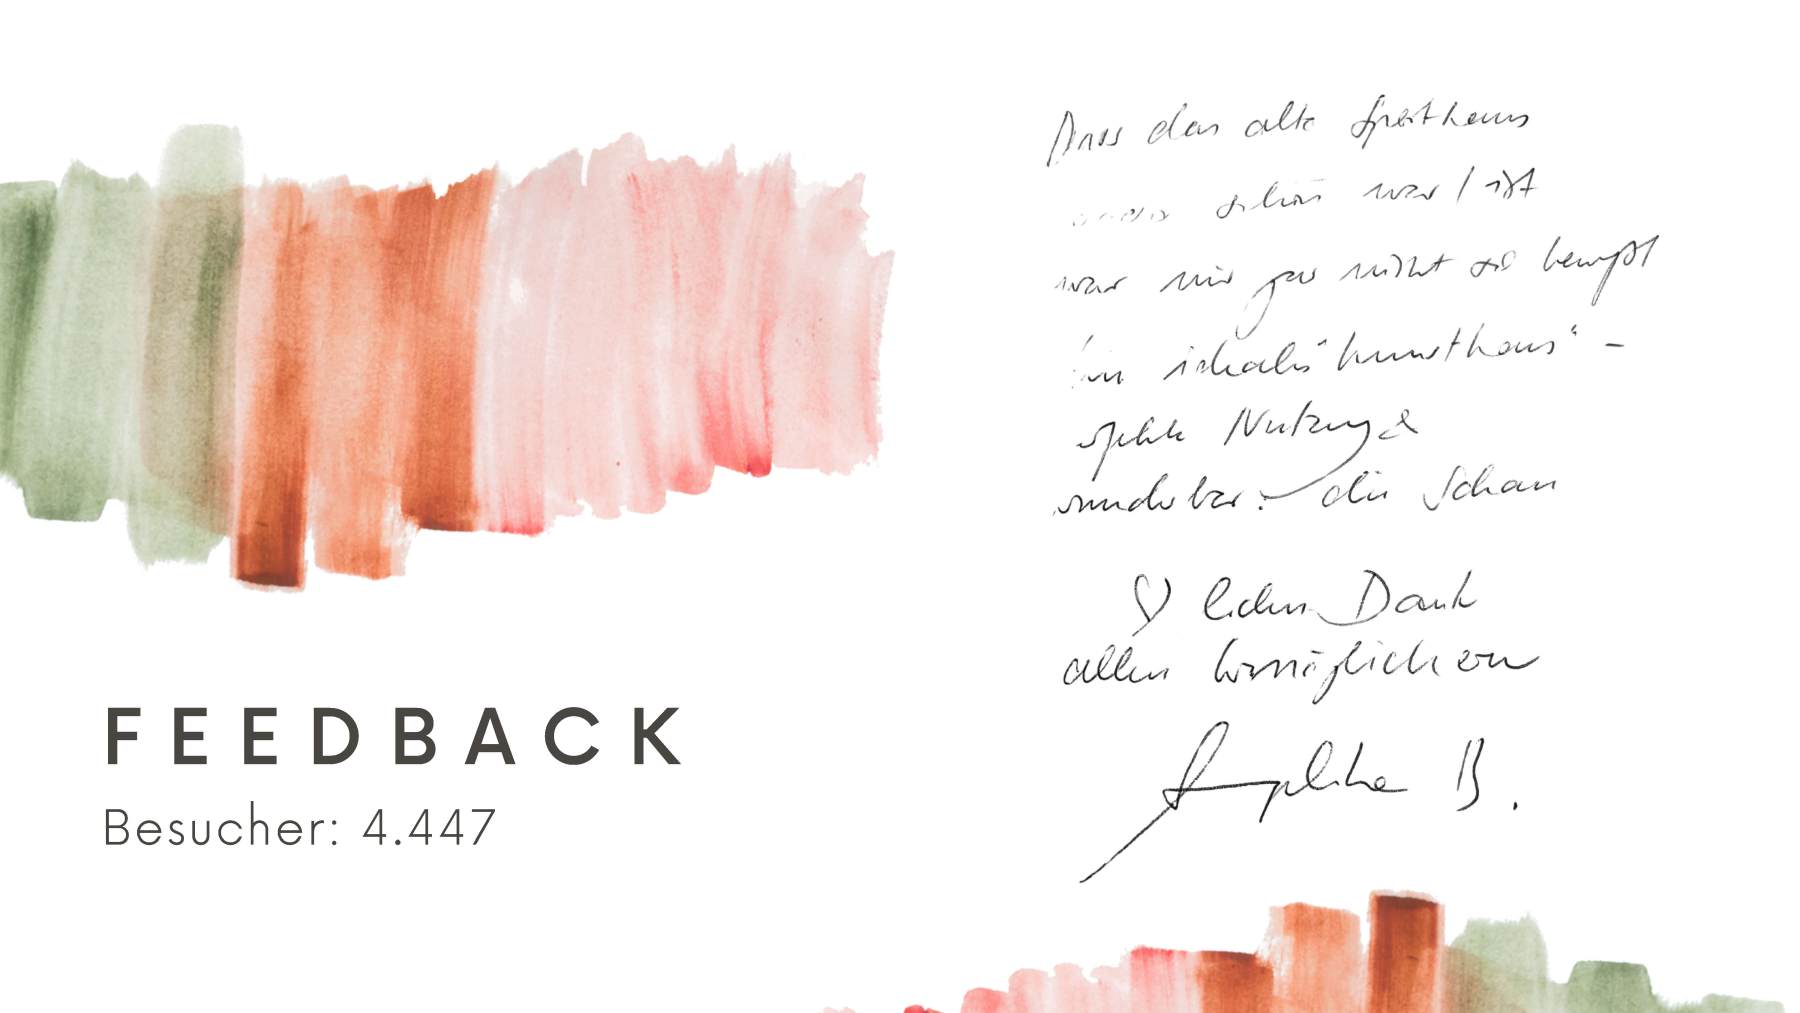 FEEDBACK
Besucher: 4.447
Dass das alte Sporthaus
schön war / ist
war mir gar nicht so bewußt
ein ideales "Kunsthaus" –
Nutzung &
wunderbar: die Schau
♡ lichen Dank
allen Ermöglichern
Angelika B.